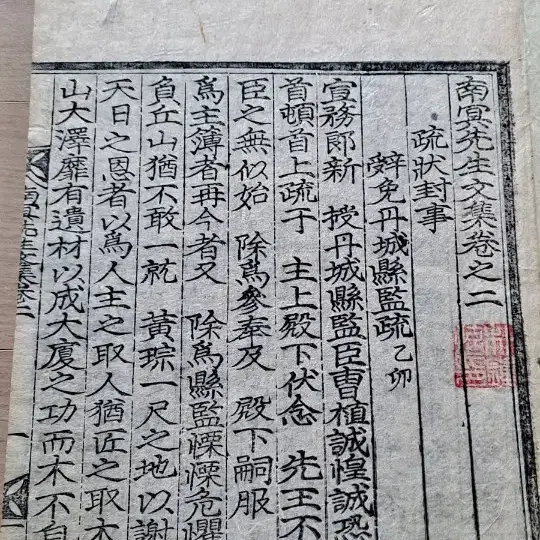 南冥先生文集卷之二
疏狀封事
辭免丹城縣監疏 乙卯
宣務郎新 授丹城縣監臣曺植誠惶誠恐
首頓首上疏于 主上殿下伏念 先王不
臣之無似始 除爲參奉及 殿下嗣服
爲主簿者再今者又 除爲縣監慄慄危懼
負丘山猶不敢一就 黃琮一尺之地以謝
天日之恩者以爲人主之取人猶匠之取木
山大澤靡有遺材以成大廈之功而木不自